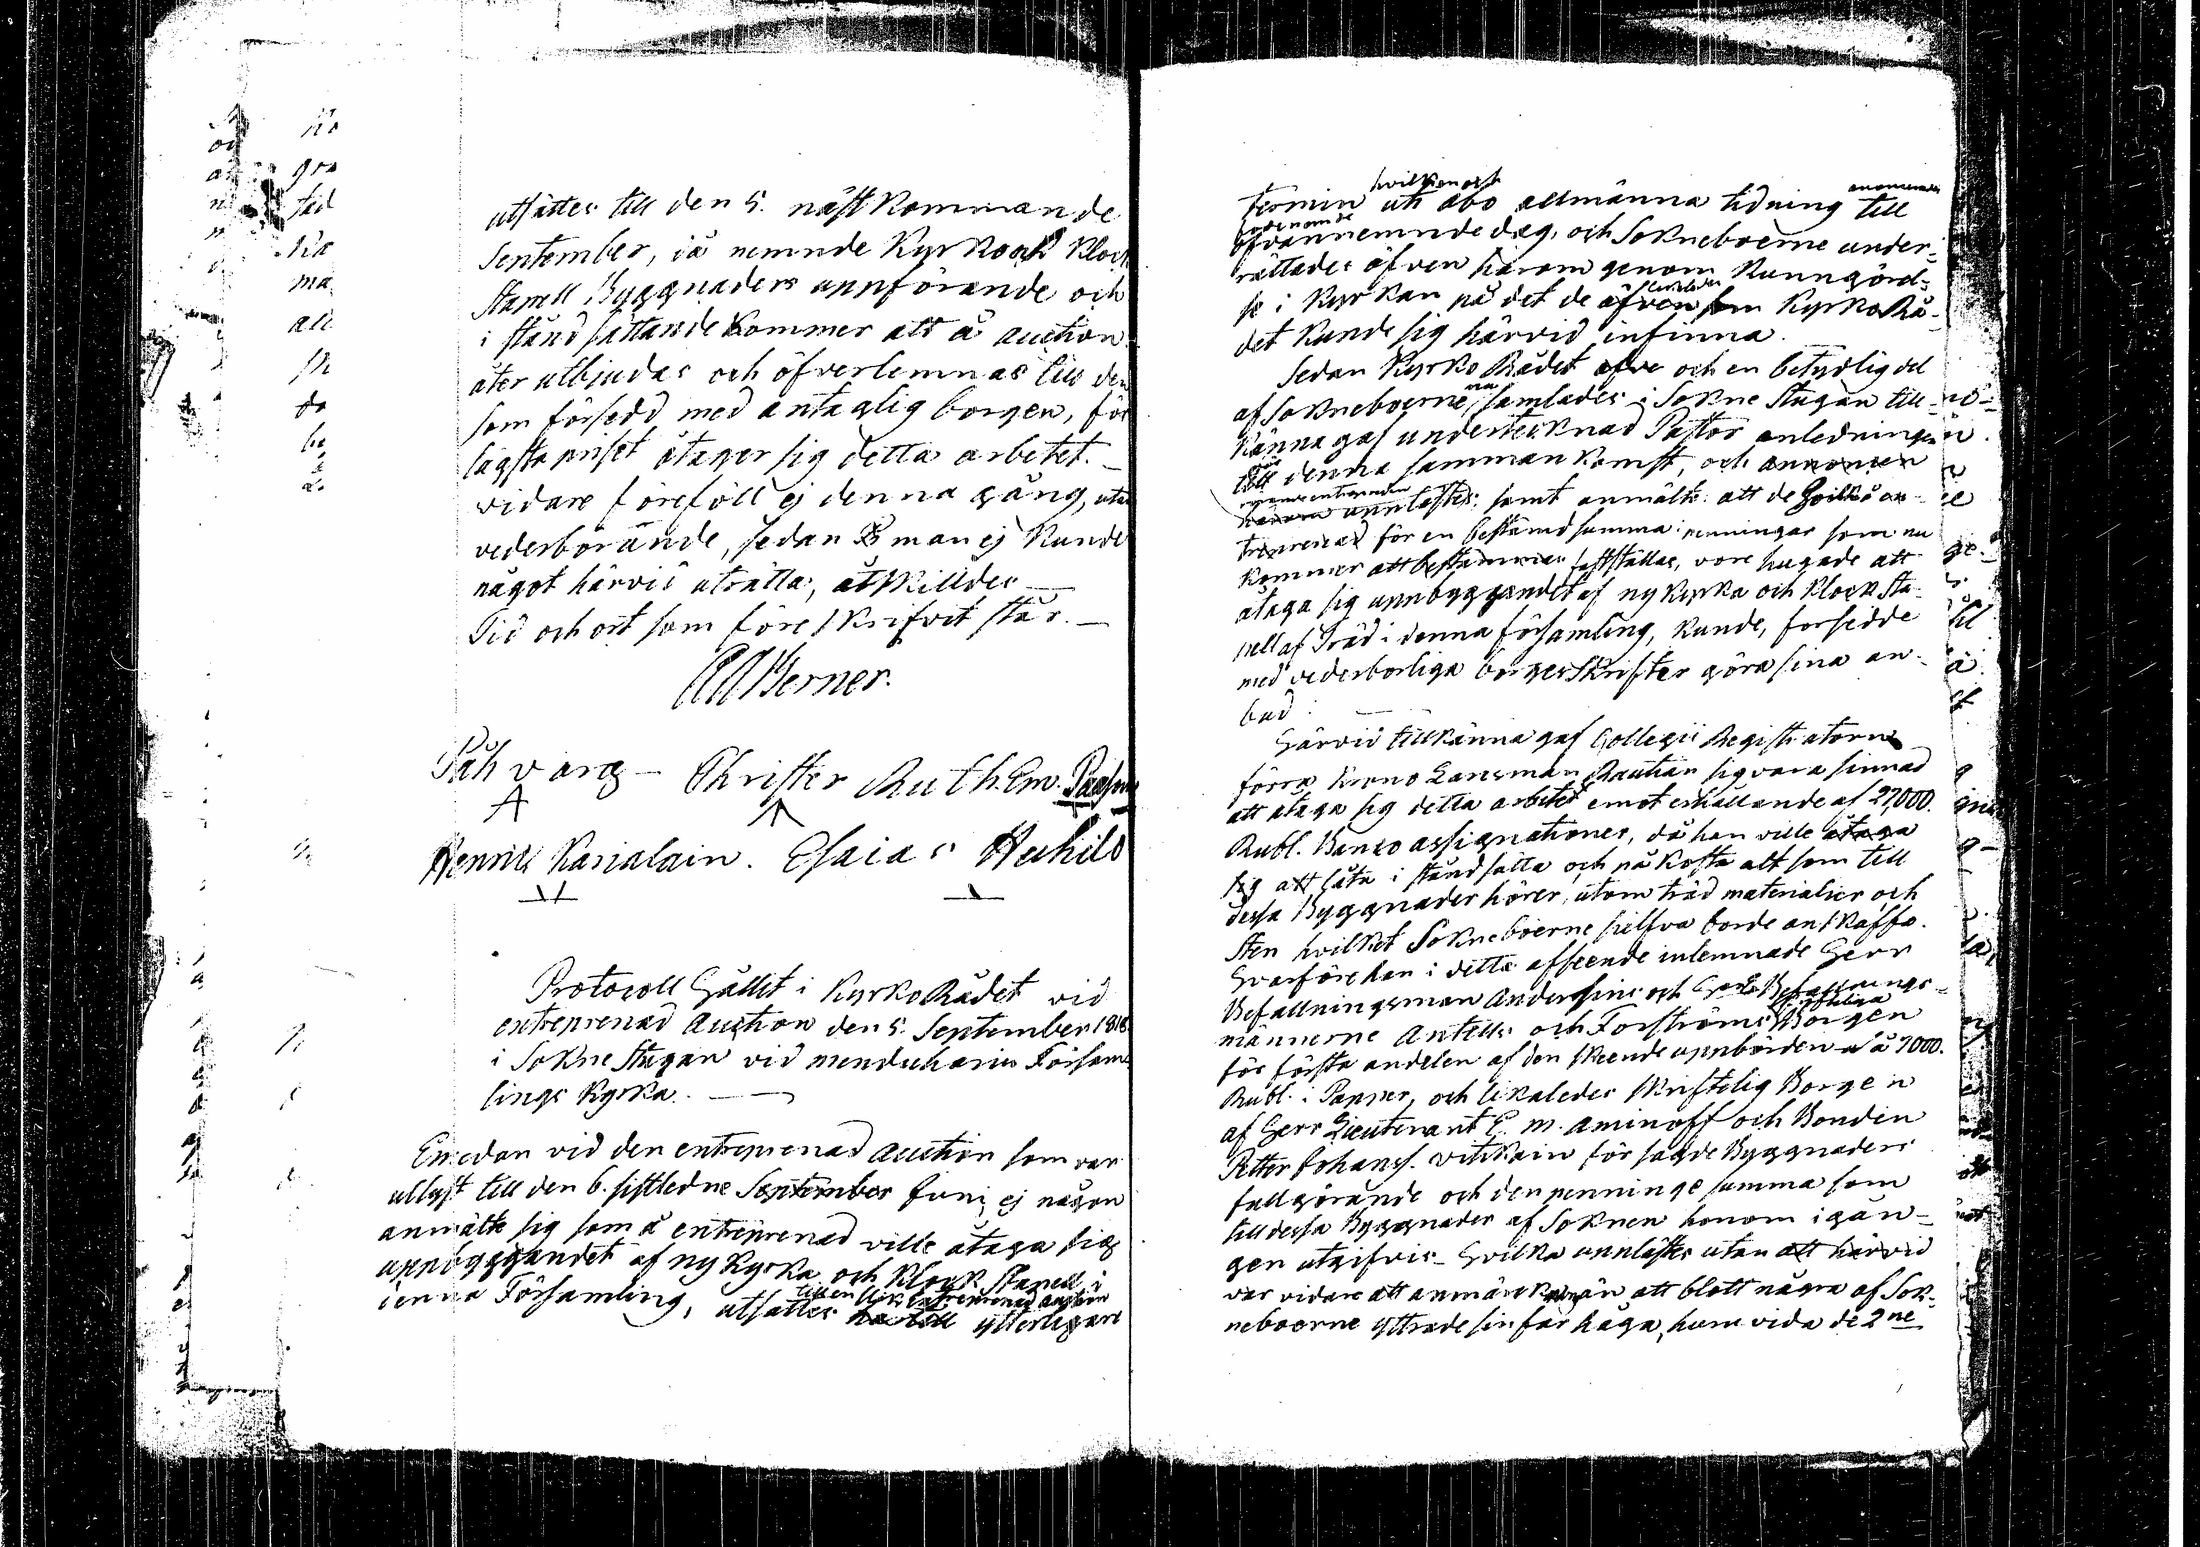 utsattes till den 5. nästkommande
September, då nemnde Kyrko och Klock
stapell Byggnaders uppförande och
i stånd sättande kommer att å auction
åter utbjudas och öfverlemnas till den
som försedd med antaglig borgen, för
lägsta priset åtager sig detta arbetet. —
vidare föreföll ej denna gång, utan
vederbörande, sedan man ej kunde
något härvid uträtta, åtskilldes —
Tid och ort somföreskrifvit står. —
Berner.
Påh varg — Christer Auth. Em.
Karialain. Esaias Huhild
Protocoll Hållit i KyrkoRådet vid
entreprenad Auction den 5. September 1818
i SokneStugan vid menduharju Försam
lings Kyrka. —
Emedan vid den entreprenad Auction som var
utlyst till den 6. sistledne September Junii ej någon
anmälte sig som å entreprenad ville åtaga sig
uppbyggandet af ny Kyrka och Klockstapell i
denna Församling, utsattes till en entreprenad auction ytterligare
hvilken ock
termin uti åbo allmänna tidning till
ofvannemnde dag, och Sokneboerne under-
rättades äfven härom genom Kunngörel-
se i Kyrkan på det de äfven som KyrkoRå-
det kunde sig härvid infinna.
Sedan KyrkoRådet och en betydlig del
af Sokneboerne samlades i SokneStugan till-
känna gaf undertecknad Pastor anledningen
till denna sammankomst, och annoncen
upplästes, samt anmälte att de hvilka å en-
treprenad för en bestämd summa penningar som nu
kommer att fastställas, vore hugade att
åtaga sig uppbyggandet af ny Kyrka och Klocksta-
pell af Träd i denna församling, kunde, forsedde
med vederborliga borgesskrifter göra sina an-
bud. —
Härvid tillkänna gaf Collegii Registratorn
förra Krono Länsman Rautian sig vara sinnad
att åtaga sig detta arbetet emot erhållande af 27,000.
Rubl. Banco assignationer, då han ville åtaga
sig att låta i stånd sätta och på kosta allt som till
dessa Byggnader hörer, utom träd materialier och
sten hvilket Sokneboerne sielfva borde anskaffa.
Hvarföre han i detta afseende inlemnade Herr
Befallningsman Andersins och Befallnings-
männerne Antells och Forströms skriftliga Borgen
för första andelen af den skeende uppbörden à 7000.
Rubl. i Papper, och likaledes skriftelig Borgen
af Herr Lieutenant E. M. Aminoff och Bonden
Petter Johanss. vitikain för sagde Byggnaders
fullgörande och den penninge summa som
till dessa Byggnader af Soknen honom i gån-
gen utgifvis — Hvilka upplästes utan att härvid
var vidare att anmärka än att blott några af Sok-
neboerne yttrade sin farhåga, huruvida de 2ne